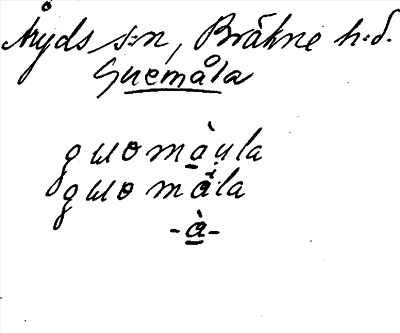 Åryds s:n, Bräkne h:d.
Guemåla
guɯomàu̯la
guɯomåla
-à-